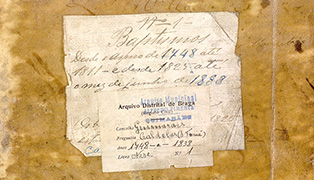 Nº 1
Baptismos
Desde o anno de 1748 até
1811 e desde 1825 até
o mez de junho de 1838
Arquivo Distrital de Braga
Arquivo Municipal
GUIMARÃES
Concelho Guimarães
Freguesia Caldelas (S. Tomé)
Anos 1748-a-1838
Livro Nº 1